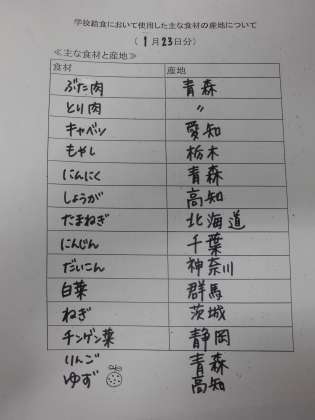 学校給食において使用した主な食材の産地について
（ 1月23日分）
≪主な食材と産地≫
食材 産地
ぶた肉 青森
とり肉 〃
キャベツ 愛知
もやし 栃木
にんにく 青森
しょうが 高知
たまねぎ 北海道
にんじん 千葉
だいこん 神奈川
白菜 群馬
ねぎ 茨城
チンゲン菜 静岡
りんご 青森
ゆず 高知